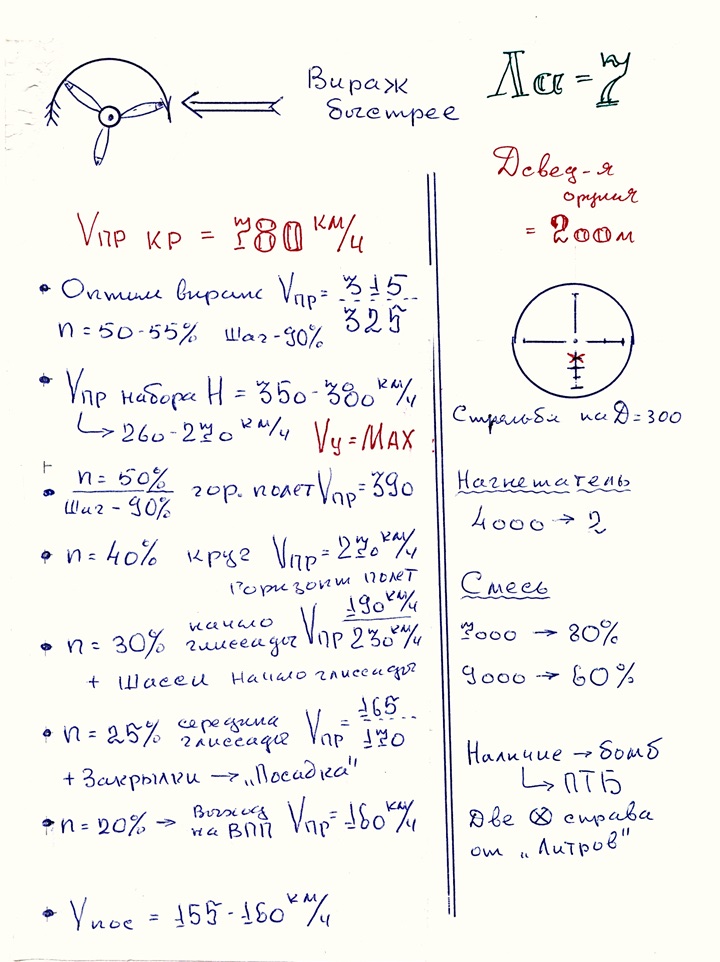 Вираж
быстрее
Ла-7
Дсвед-я
оружия
= 200м
Vпр кр = 780 км/ч
• Оптим вираж Vпр = 315
325
n = 50-55% Шаг-90%
• Vпр набора H = 350-380 км/ч
↳ 260-270 км/ч Vy = MAX
• n = 50%
Шаг-90%
гор. полет Vпр = 390
• n = 40% круг Vпр = 270 км/ч
Горизонт полет
• n = 30% начало глиссады Vпр 190 км/ч
230 км/ч
+ Шасси Начало глиссады
• n = 25% середина глиссады Vпр = 165
170
+ Закрылки → „Посадка"
• n = 20% → Выход на ВПП Vпр = 160 км/ч
• Vпос = 155-160 км/ч
Стрельба на Д = 300
Нагнетатель
4000 → 2
Смесь
7000 → 80%
9000 → 60%
Наличие → бомб
↳ ПТБ
Две ⊗ справа
от „Литров"